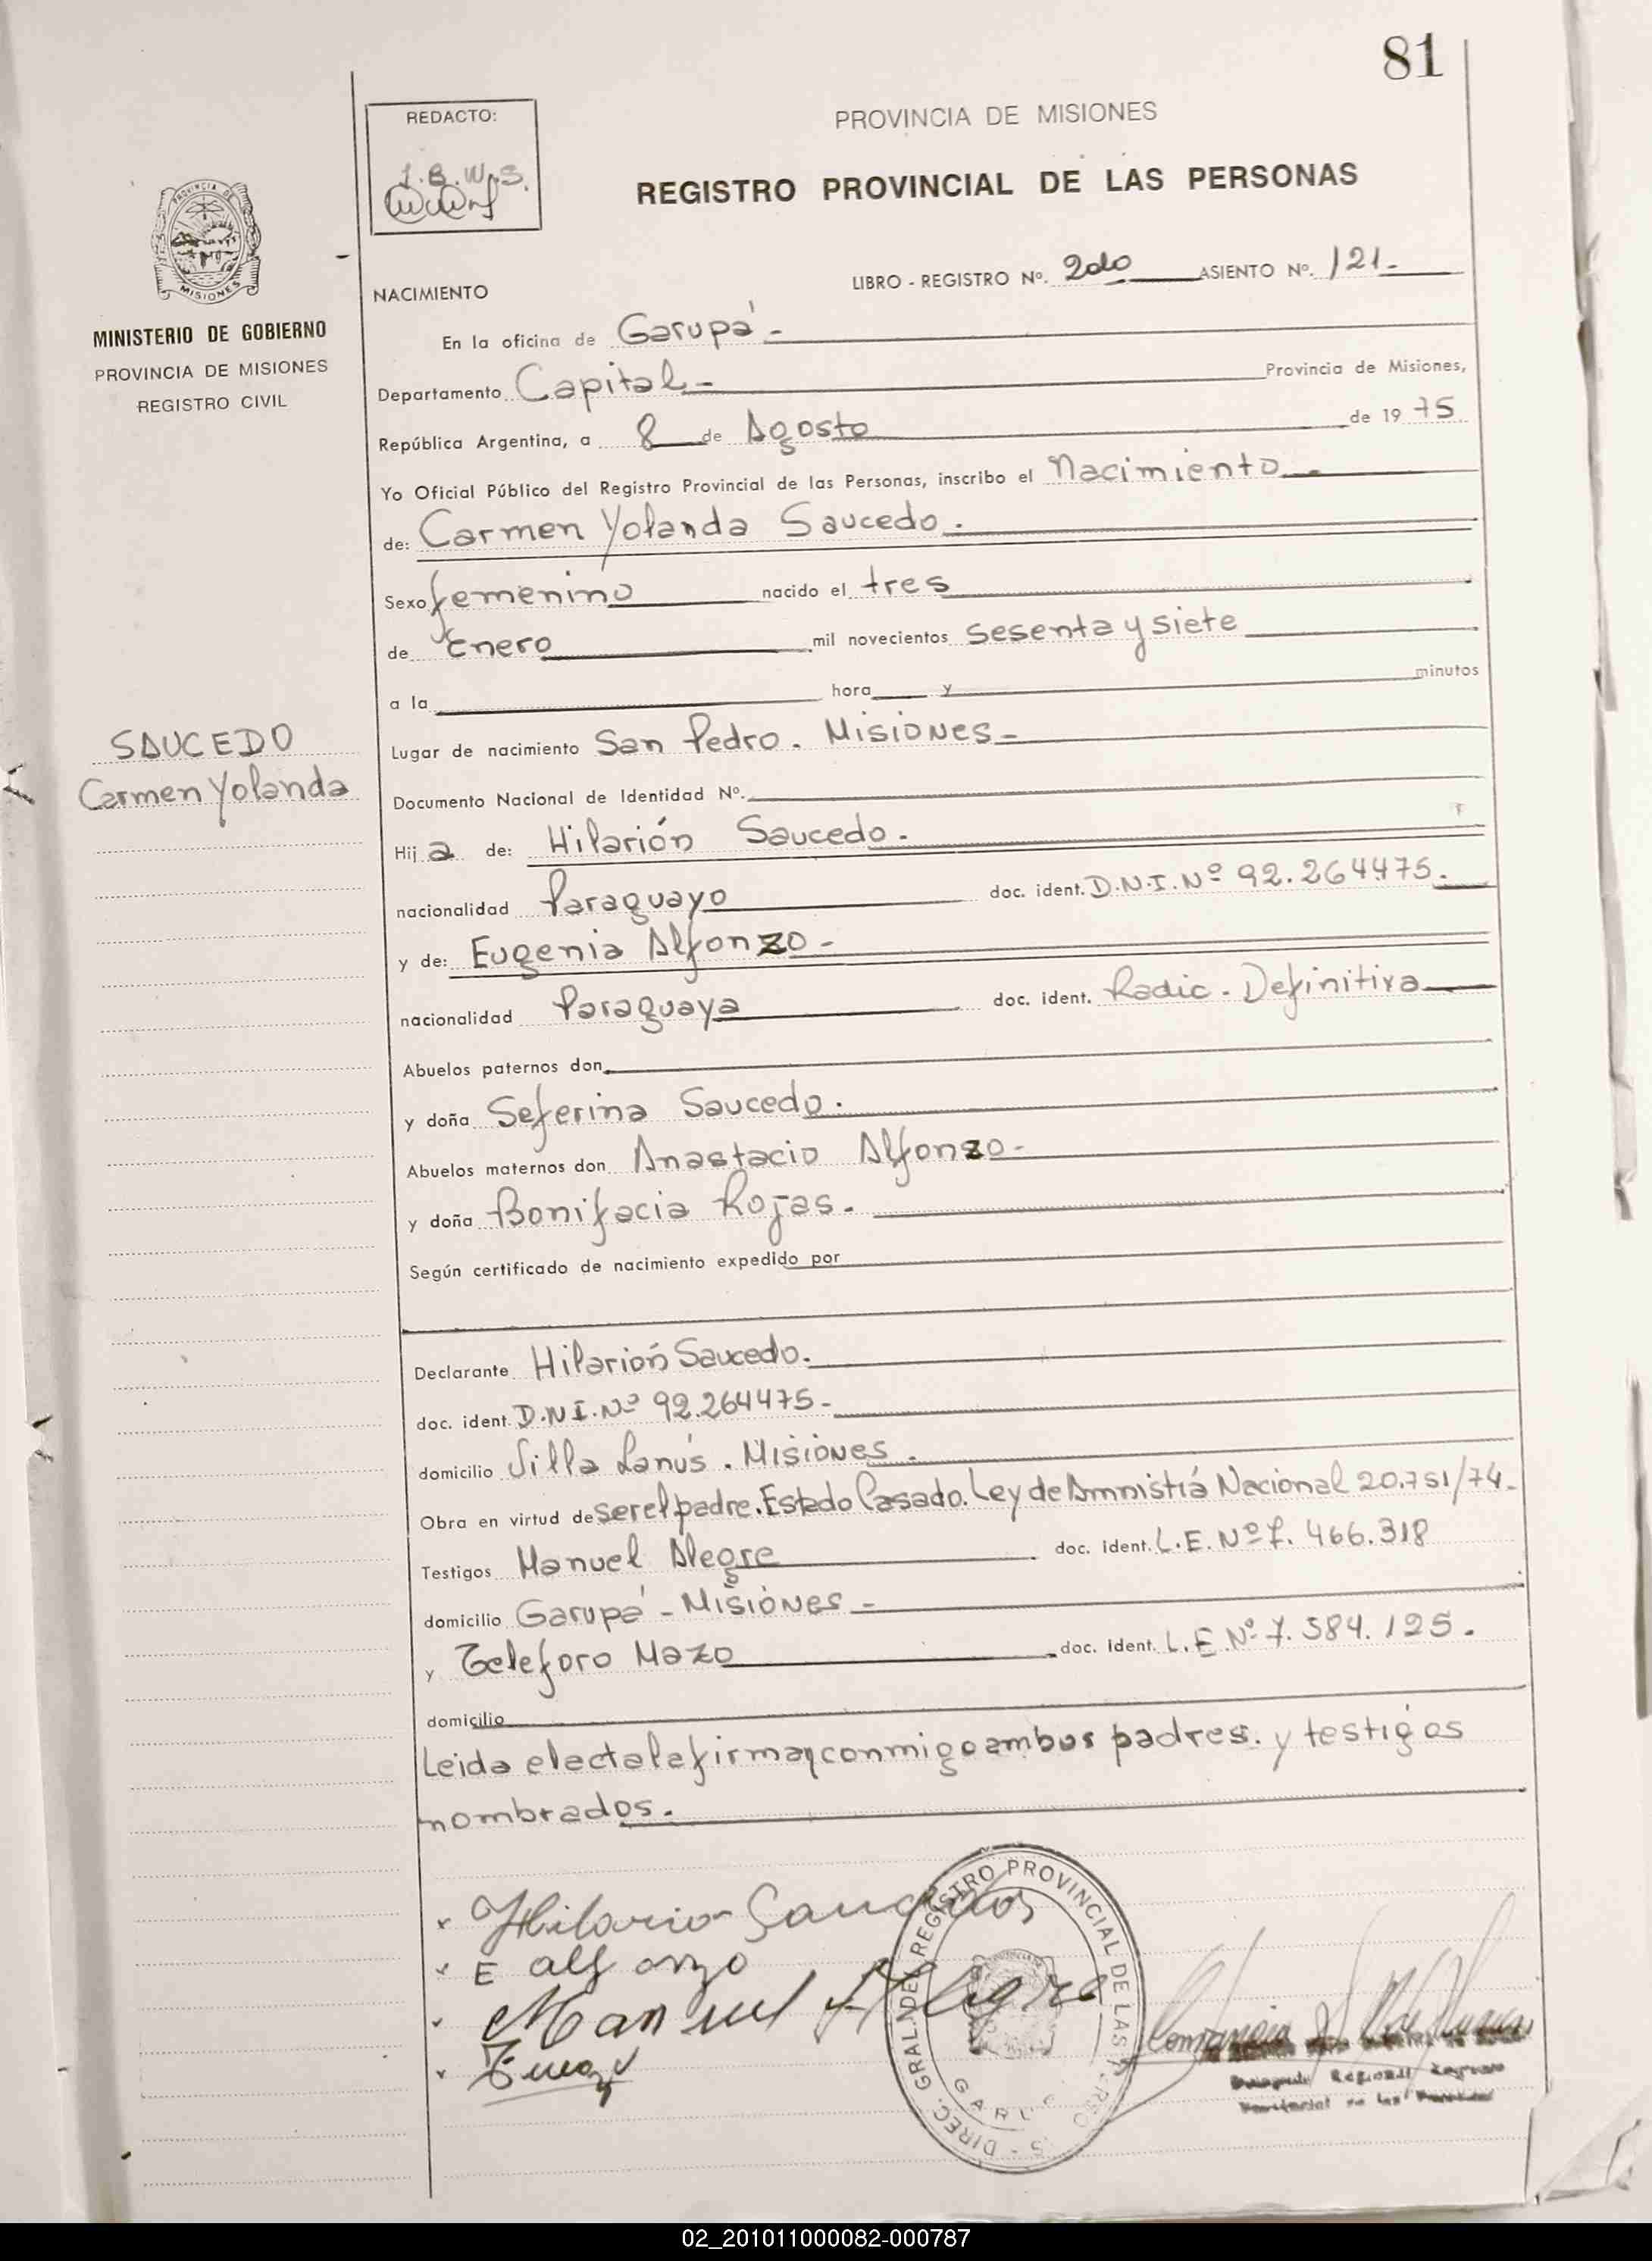 81
REDACTO:
PROVINCIA DE MISIONES
REGISTRO PROVINCIAL DE LAS PERSONAS
MISIONES
MINISTERIO DE GOBIERNO
PROVINCIA DE MISIONES
REGISTRO CIVIL
LIBRO - REGISTRO Nº. 2do ASIENTO Nº. 121.-
NACIMIENTO
En la oficina de Garupá -
Departamento Capital - Provincia de Misiones,
República Argentina, a 8 de Agosto de 19 75
Yo Oficial Público del Registro Provincial de las Personas, inscribo el Nacimiento
de: Carmen Yolanda Saucedo.
Sexo femenino nacido el tres
de Enero mil novecientos sesenta y siete
a la hora y minutos
Lugar de nacimiento San Pedro. Misiones -
SAUCEDO
Carmen Yolanda
Documento Nacional de Identidad Nº.
Hij a de: Hilarión Saucedo.
nacionalidad Paraguayo doc. ident. D.N.I.Nº 92.264475.
y de: Eugenia Alfonzo -
nacionalidad Paraguaya doc. ident. Radic. Definitiva
Abuelos paternos don
y doña Seferina Saucedo.
Abuelos maternos don Anastacio Alfonzo -
y doña Bonifacia Rojas.
Según certificado de nacimiento expedido por
Declarante Hilarión Saucedo.
doc. ident. D.N.I.Nº 92.264475 -
domicilio Villa Lanús. Misiones.
Obra en virtud de ser el padre. Estado Casado. Ley de Amnistía Nacional 20.751/74.
Testigos Manuel Alegre doc. ident. L.E. Nº 7.466.318
domicilio Garupá - Misiones -
y Teleforo Mazo doc. ident. L.E.Nº 7.584.125.
domicilio
Leida el acta la firman conmigo ambos padres. y testigos
nombrados.
Hilario Saucedo
E alfonzo
Manuel Alegre
DIREC. GRAL. DEL REGISTRO PROVINCIAL DE LAS
02_201011000082-000787